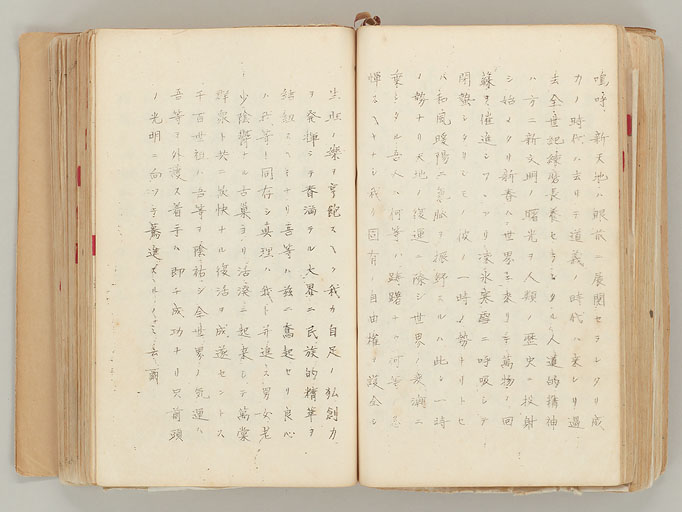 嗚呼新天地ハ眼前ニ展開セラレタリ威
力ノ時代ハ去リテ道義ノ時代ハ来レリ過
去全世紀錬磨長養セラレタル人道的精神
ハ方ニ新文明ノ曙光ヲ人類ノ歴史ニ投射
シ始メタリ新春ハ世界ニ来リテ萬物ノ回
蘇ヲ催進シツツアリ凍氷寒雪ニ呼吸シテ
閉蟄シタリシモノ彼ノ一時ノ勢ナリトセ
ハ和風暖陽ニ氣脈ヲ振舒スルハ此ノ一時
ノ勢ナリ天地ノ復運ニ際シ世界ノ変潮ニ
乗シタル吾人ハ何等ノ跡躇ナク何等ノ忌
憚スヘキナシ我ノ固有ノ自由権ヲ護全シ
生旺ノ楽ヲ享飽スヘク我カ自足ノ独創力
ヲ発揮シテ春満テル大界ニ民族的精華ヲ
結紐スヘキナリ吾等ハ茲ニ奮起セリ良心
ハ我等ト同存シ真理ハ我ト并進ス男女老
少陰鬱ナル古巣ヨリ活溌ニ起来シテ萬彙
群衆ト共ニ欣快ナル復活ヲ成遂セントス
千百世祖ハ吾等ヲ陰祐シ全世界ノ気運ハ
吾等ヲ外護ス着手ハ即チ成功ナリ只前頭
ノ光明ニ向ツテ驀進スルノミ云爾